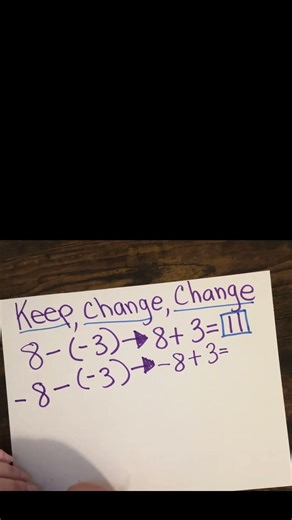 Keep, Change, Change
8-(-3)→8+3=11
-8-(-3)→-8+3=